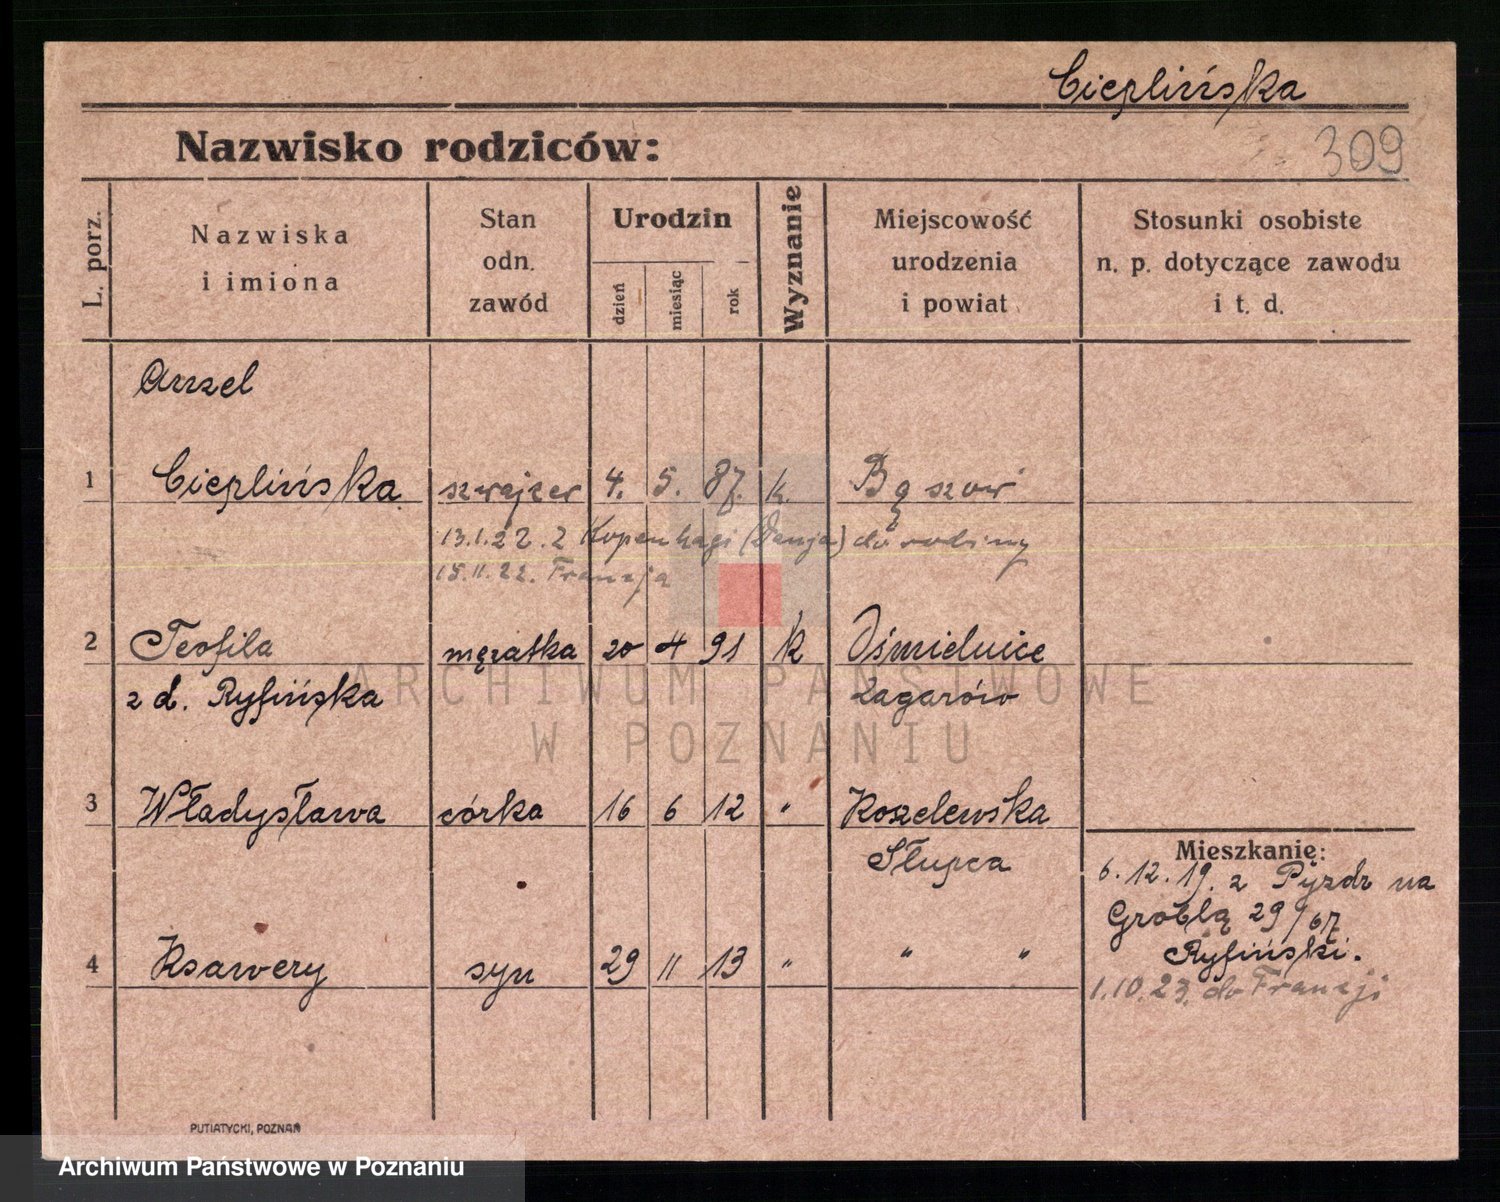 Cieplińska
309
Nazwisko rodziców:
L. porz.
Nazwiska i imiona
Stan odn. zawód
Urodzin
dzień
miesiąc
rok
Wyznanie
Miejscowość urodzenia i powiat
Stosunki osobiste n. p. dotyczące zawodu i t. d.
1 Cieplińska szwajcer 4. 5. 87. k.
13.1.22. z Kopenhagi (Danja) do rodziny
15.11.22. Francja
2 Teofila mężatka 20 4 91 k
z d. Ryfińska Zagarów
3 Władysława córka 16 6 12 " Koszelewska
Słupca
Mieszkanie:
6.12.19. z Pyzdr na
Groblą 29/67
Ryfiński.
4 Ksawery syn 29 11 13 " " "
1.10.23. do Francji
PUTIATYCKI, POZNAŃ
ARCHIWUM PAŃSTWOWE
W POZNANIU
Archiwum Państwowe w Poznaniu